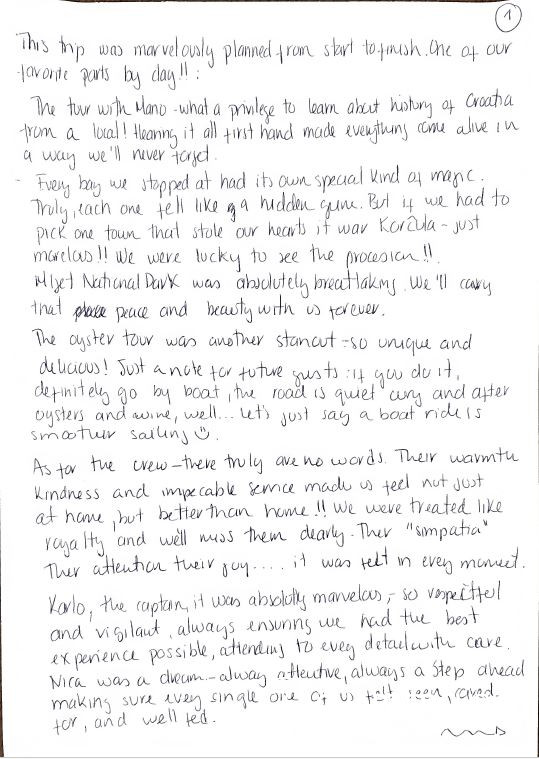 1
This trip was marvelously planned from start to finish. One of our
favorite parts by day!! :
The tour with Mano - what a privilege to learn about history of Croatia
from a local! Hearing it all first hand made everything come alive in
a way we'll never forget.
- Every bay we stopped at had its own special kind of magic.
Truly, each one fell like a hidden gem. But if we had to
pick one town that stole our hearts it war Korčula - just
marelous!! We were lucky to see the procesion!!.
Mljet National Park was absolutely breathtaking. We'll carry
that peace and beauty with us forever.
The oyster tour was another stanout - so unique and
delicious! Just a note for future gusts: if you do it,
definitely go by boat, the road is quiet curvy and after
oysters and wine, well... let's just say a boat ride is
smoother sailing ☺.
As for the crew - there truly are no words. Their warmth
kindness and impecable service made us feel not just
at home, but better than home!! We were treated like
royalty and we'll miss them dearly. Ther "simpatia"
Ther attention their joy.... it was felt in every moment.
Karlo, the captain, it was absolutly marvelous, - so respectful
and vigilant, always ensuring we had the best
experience possible, attending to every detail with care.
Nica was a dream - alway attentive, always a step ahead
making sure every single one of us felt seen, cared.
for, and well fed.